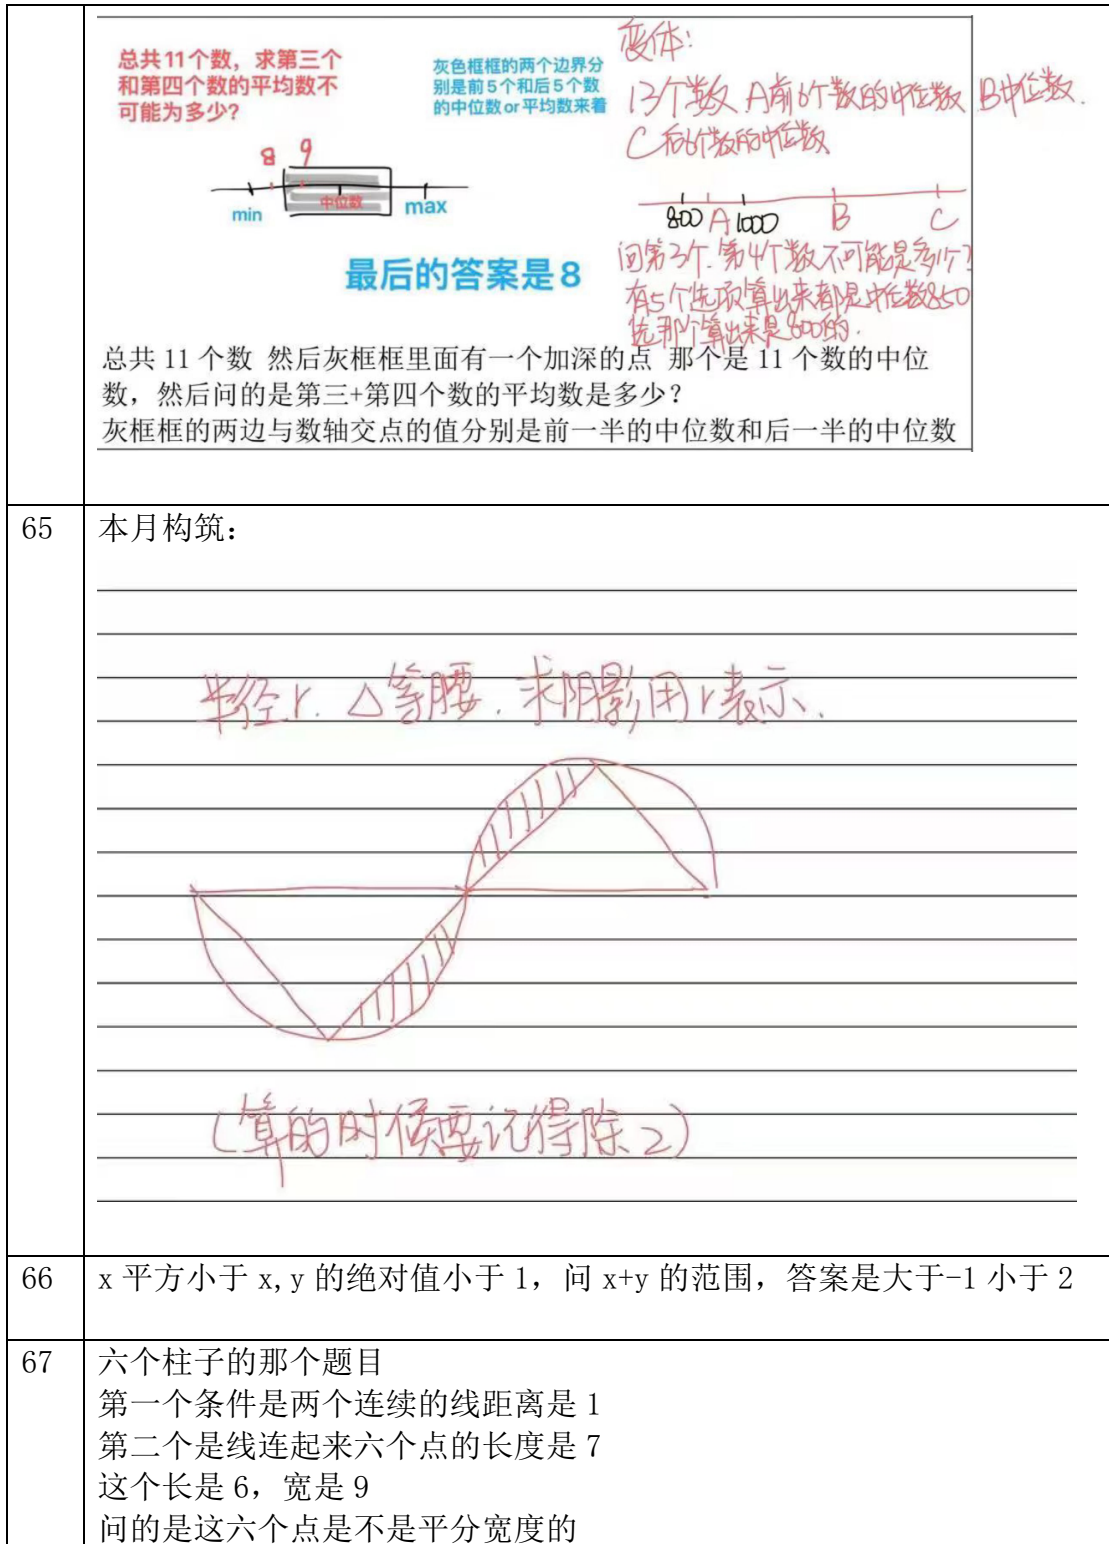 总共11个数，求第三个
和第四个数的平均数不
可能为多少？
灰色框框的两个边界分
别是前5个和后5个数
的中位数or平均数来着
8 9
中位数
min
max
最后的答案是8
变体：
13个数 A前6个数的中位数 B中位数.
C后6个数的中位数
800 A 1000 B C
问第3个.第4个数不可能是多少？
有5个选项算出来都是中位数850
选那个算出来是800的.
总共 11 个数 然后灰框框里面有一个加深的点 那个是 11 个数的中位
数，然后问的是第三+第四个数的平均数是多少？
灰框框的两边与数轴交点的值分别是前一半的中位数和后一半的中位数
65 本月构筑：
半径r. △等腰. 求阴影用r表示.
(算的时候要记得除2)
66 x 平方小于 x,y 的绝对值小于 1，问 x+y 的范围，答案是大于-1 小于 2
67 六个柱子的那个题目
第一个条件是两个连续的线距离是 1
第二个是线连起来六个点的长度是 7
这个长是 6，宽是 9
问的是这六个点是不是平分宽度的